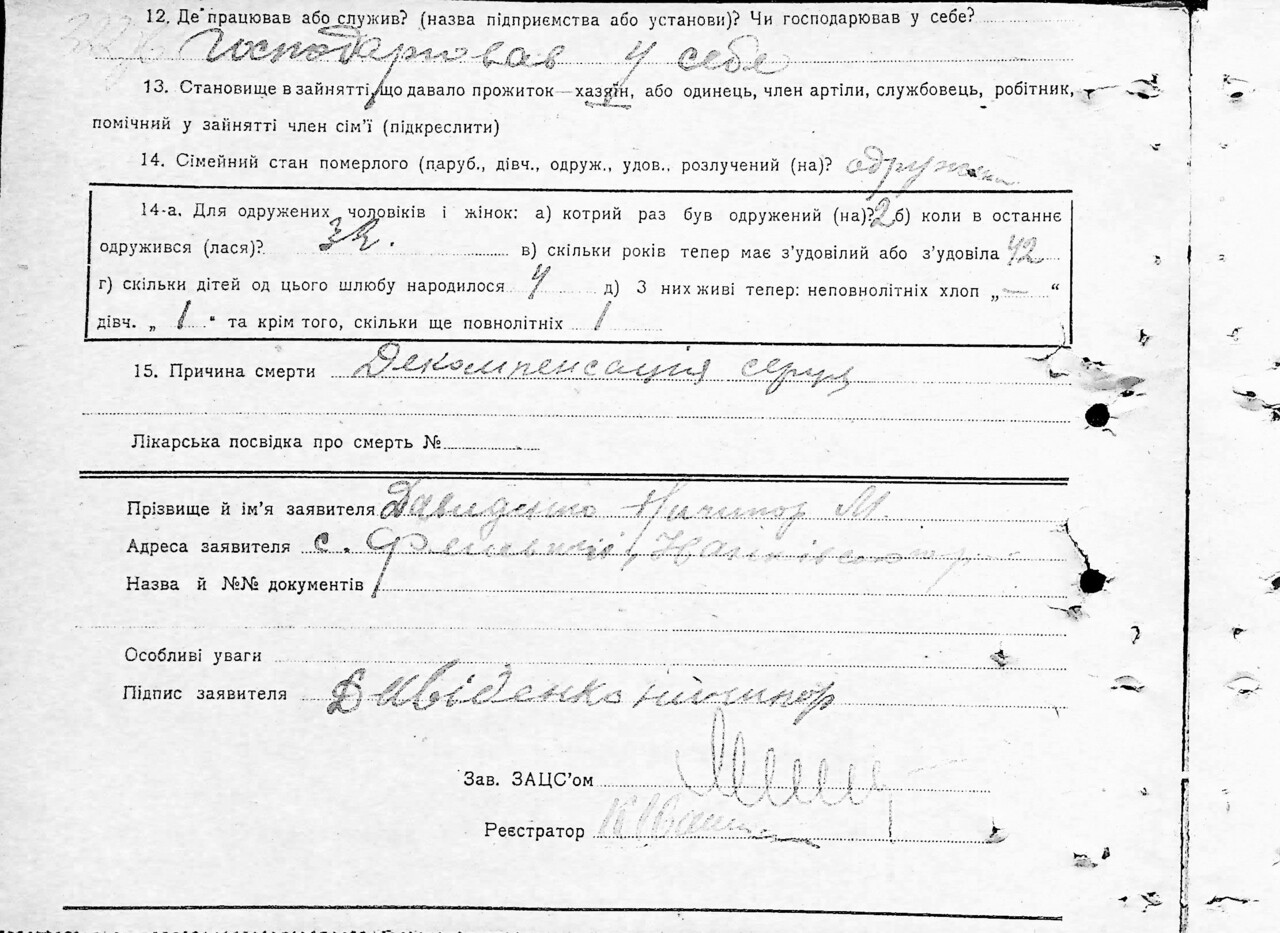 12. Де працював або служив? (назва підприємства або установи)? Чи господарював у себе?
Господарював у себе
13. Становище в зайнятті, що давало прожиток—хазяїн, або одинець, член артіли, службовець, робітник,
помічний у зайнятті член сім’ї (підкреслити)
14. Сімейний стан померлого (паруб., дівч., одруж., удов., розлучений (на)? одружени
14-а. Для одружених чоловіків і жінок: а) котрий раз був одружений (на)? 2 б) коли в останнє
одружився (лася)? в) скільки років тепер має з’удовілий або з’удовіла 42
г) скільки дітей од цього шлюбу народилося 4 д) З них живі тепер: неповнолітніх хлоп „—“
дівч. „ 1 “ та крім того, скільки ще повнолітніх 1
15. Причина смерти Декомпенсація серця
Лікарська посвідка про смерть №
Прізвище й ім’я заявителя Давиденко Ничипор М.
Адреса заявителя с.
Назва й №№ документів
Особливі уваги
Підпис заявителя Давіденко ничипор
Зав. ЗАЦС’ом
Реєстратор